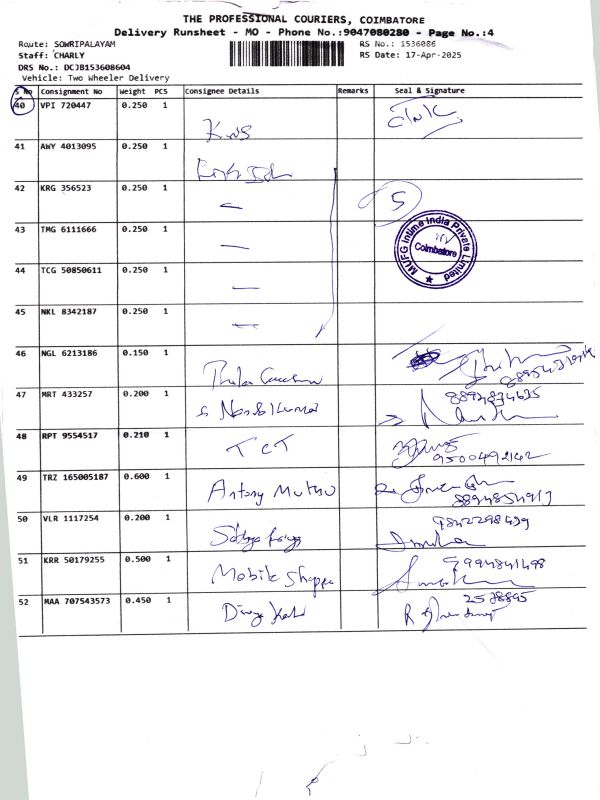 THE PROFESSIONAL COURIERS, COIMBATORE
Delivery Runsheet - MO - Phone No.:9047080280 - Page No.:4
Route: SOWRIPALAYAM RS No.: 1536086
Staff: CHARLY RS Date: 17-Apr-2025
DRS No.: DCJB153608604
Vehicle: Two Wheeler Delivery
S No Consignment No Weight PCS Consignee Details Remarks Seal & Signature
40 VPI 720447 0.250 1
41 AWY 4013095 0.250 1
42 KRG 356523 0.250 1 5
43 TMG 6111666 0.250 1
MUFG Intime India Private Limited
Coimbatore
44 TCG 50850611 0.250 1
45 NKL 8342187 0.250 1
46 NGL 6213186 0.150 1
47 MRT 433257 0.200 1
48 RPT 9554517 0.210 1 TCT
9500492142
49 TRZ 165005187 0.600 1 Antony Muthu
50 VLR 1117254 0.200 1 9842298439
51 KRR 50179255 0.500 1 Mobile 9994841498
52 MAA 707543573 0.450 1 2578895